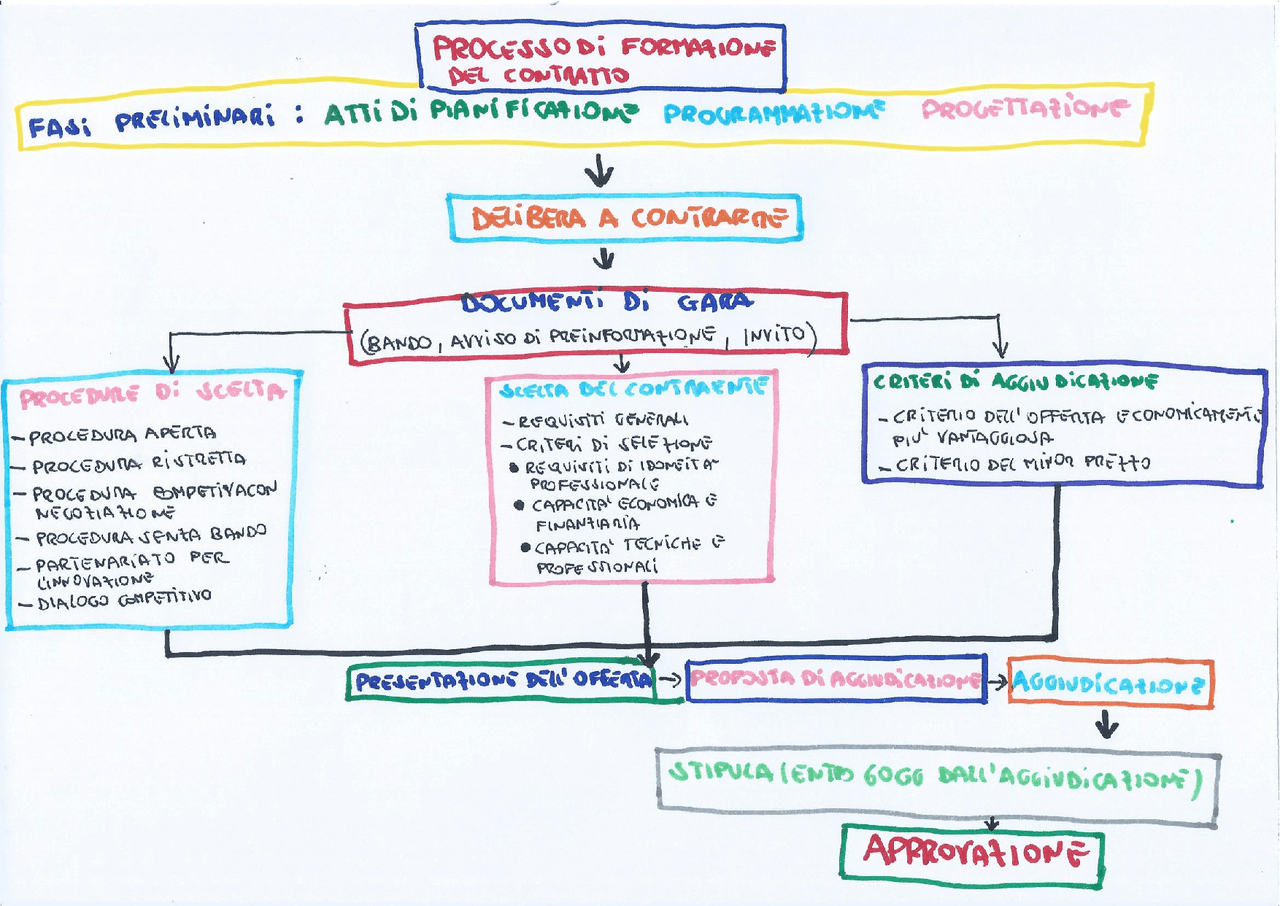 PROCESSO DI FORMAZIONE
DEL CONTRATTO
FASI PRELIMINARI : ATTI DI PIANIFICAZIONE PROGRAMMAZIONE PROGETTAZIONE
DELIBERA A CONTRARRE
DOCUMENTI DI GARA
(BANDO, AVVISO DI PREINFORMAZIONE, INVITO)
PROCEDURE DI SCELTA
- PROCEDURA APERTA
- PROCEDURA RISTRETTA
- PROCEDURA COMPETIVACON
NEGOZIAZIONE
- PROCEDURA SENZA BANDO
- PARTENARIATO PER
L'INNOVAZIONE
- DIALOGO COMPETITIVO
SCELTA DEL CONTRAENTE
- REQUISITI GENERALI
- CRITERI DI SELEZIONE
• REQUISITI DI IDONEITA'
PROFESSIONALE
• CAPACITA' ECONOMICA E
FINANZIARIA
• CAPACITA' TECNICHE E
PROFESSIONALI
CRITERI DI AGGIUDICAZIONE
- CRITERIO DELL'OFFERTA ECONOMICAMENTE
PIU' VANTAGGIOSA
- CRITERIO DEL MINOR PREZZO
PRESENTAZIONE DELL'OFFERTA
PROPOSTA DI AGGIUDICAZIONE
AGGIUDICAZIONE
STIPULA (ENTRO 60GG DALL'AGGIUDICAZIONE)
APPROVAZIONE